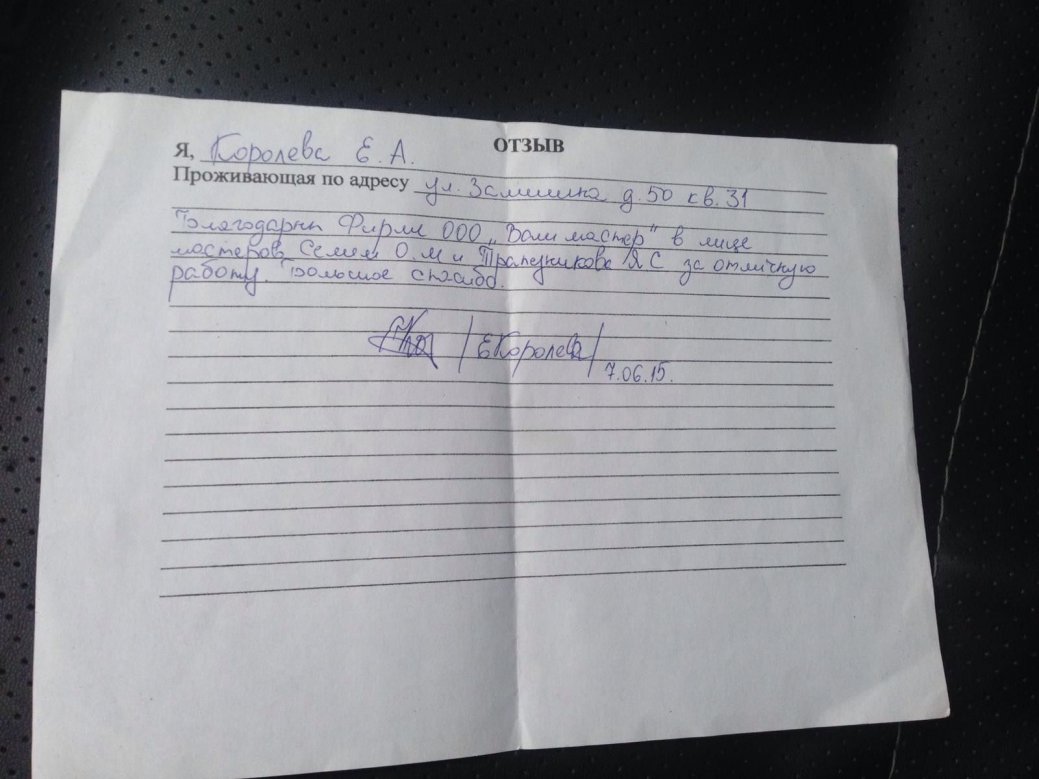 ОТЗЫВ
Я, Королева Е. А.
Проживающая по адресу ул. Замшина д. 50 кв. 31
Благодарны Фирме ООО „Вашмастер" в лице
мастеров О.М и Трапезникова Я С за отличную
работу. Большое спасибо.
/ ЕКоролева /
7.06.15.